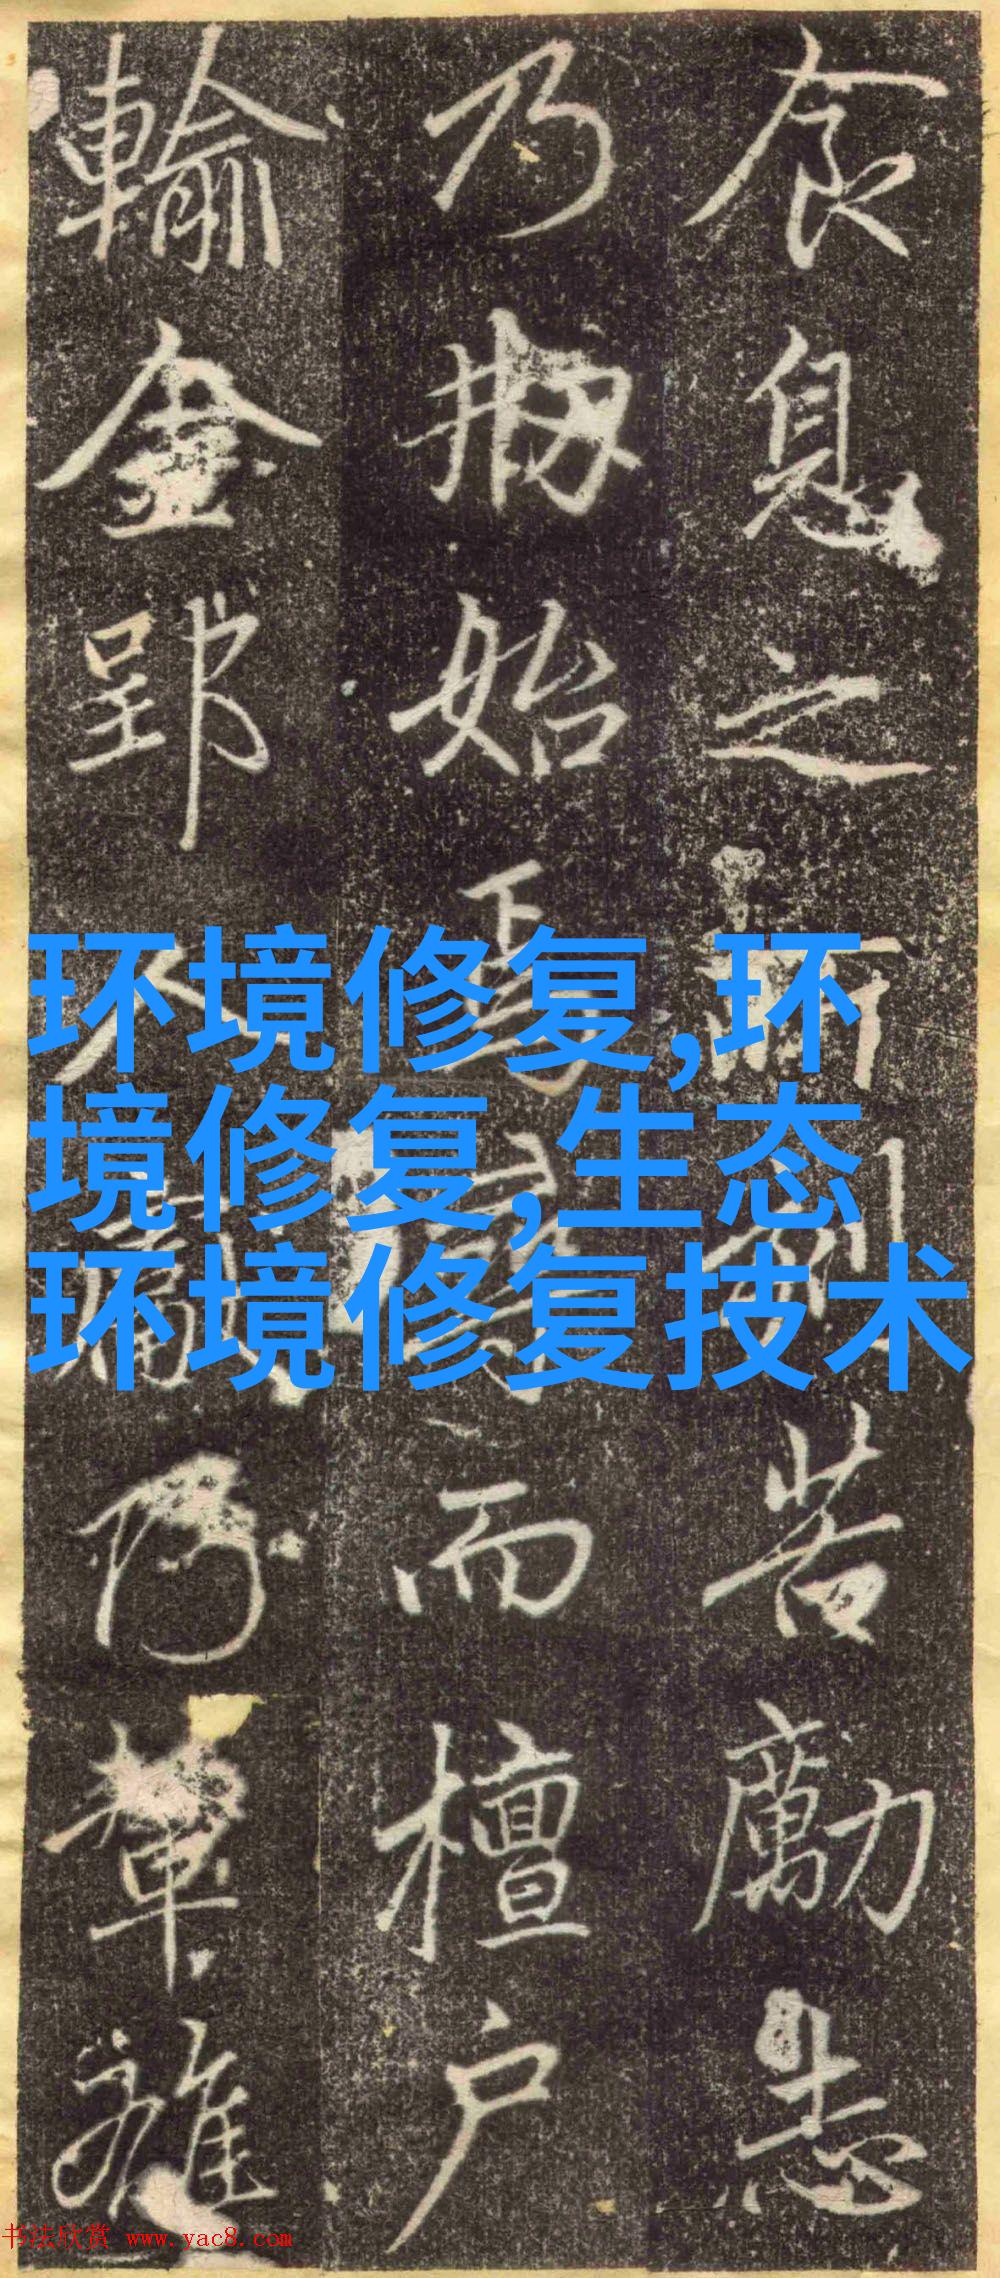 食息之所苦勵志
乃始焉而檀户
輸金郢人
环境修复,环
境修复,生态
环境修复技术
书法欣赏 www.yac8.com